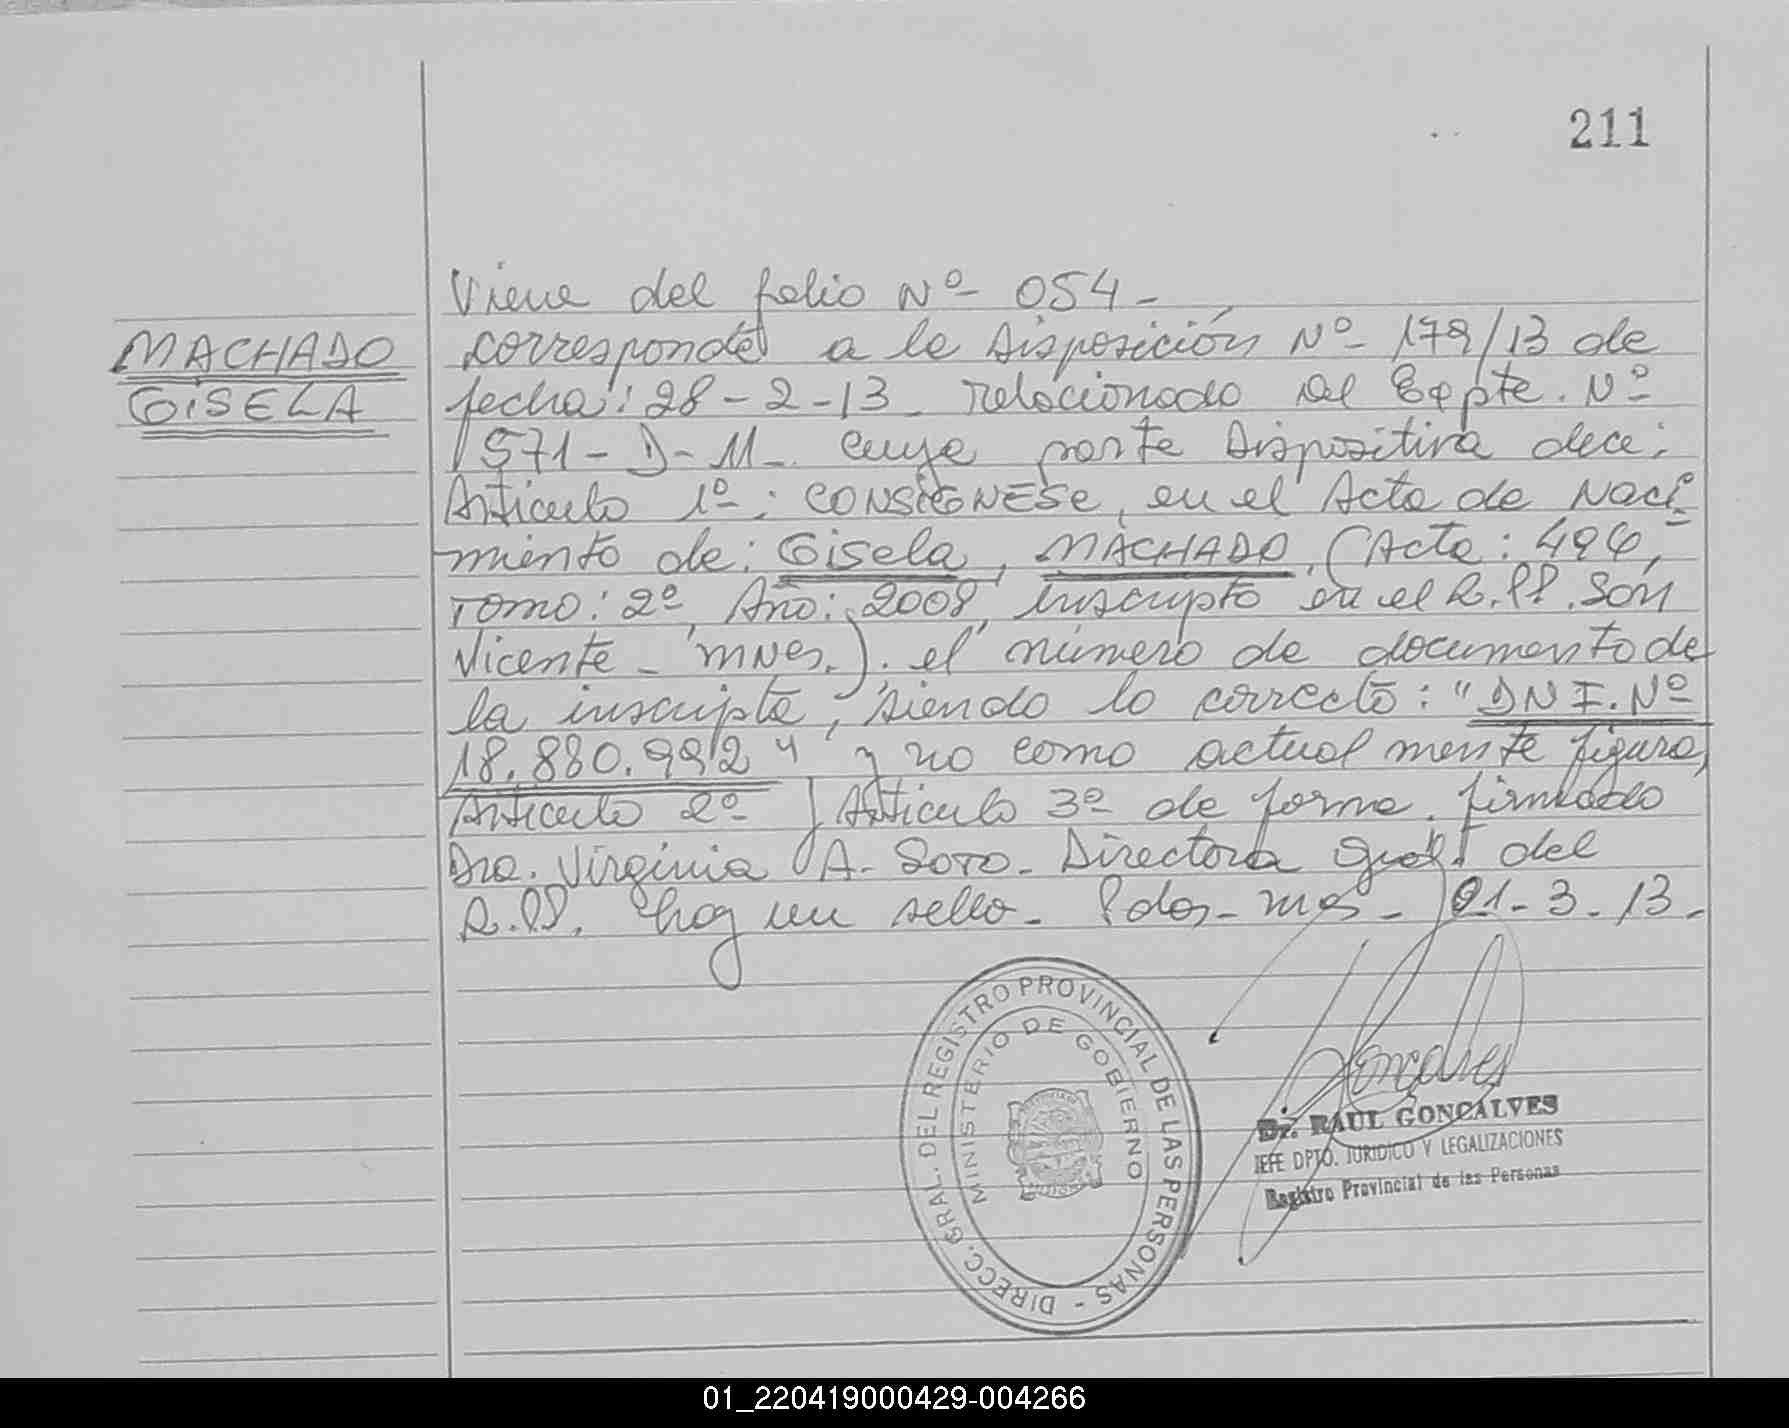 211
Viene del folio Nº 054-
MACHADO
GISELA
corresponde a la Disposición Nº 179/13 de
fecha: 28-2-13 relacionado al Expte. Nº
1571-D-11- cuya parte Dispositiva dice:
Articulo 1º: CONSIGNESE, en el Acta de Naci-
miento de: Gisela, MACHADO, (Acta: 496,
Tomo: 2º, Año: 2008, inscripta en el R.PP. San
Vicente - Mnes.). el número de documento de
la inscripta, siendo lo correcto: "DNI. Nº
18.880.992" y no como actualmente figura,
Articulo 2º y Articulo 3º de forma. firmado
Dra. Virginia A. Soto. Directora Gral. del
R.PP. hay un sello- Pdas-mnes- 01-3-13.
DIRECC. GRAL. DEL REGISTRO PROVINCIAL DE LAS PERSONAS -
MINISTERIO DE GOBIERNO
Dr. RAUL GONCALVES
JEFE DPTO. JURIDICO Y LEGALIZACIONES
Registro Provincial de las Personas
01_220419000429-004266